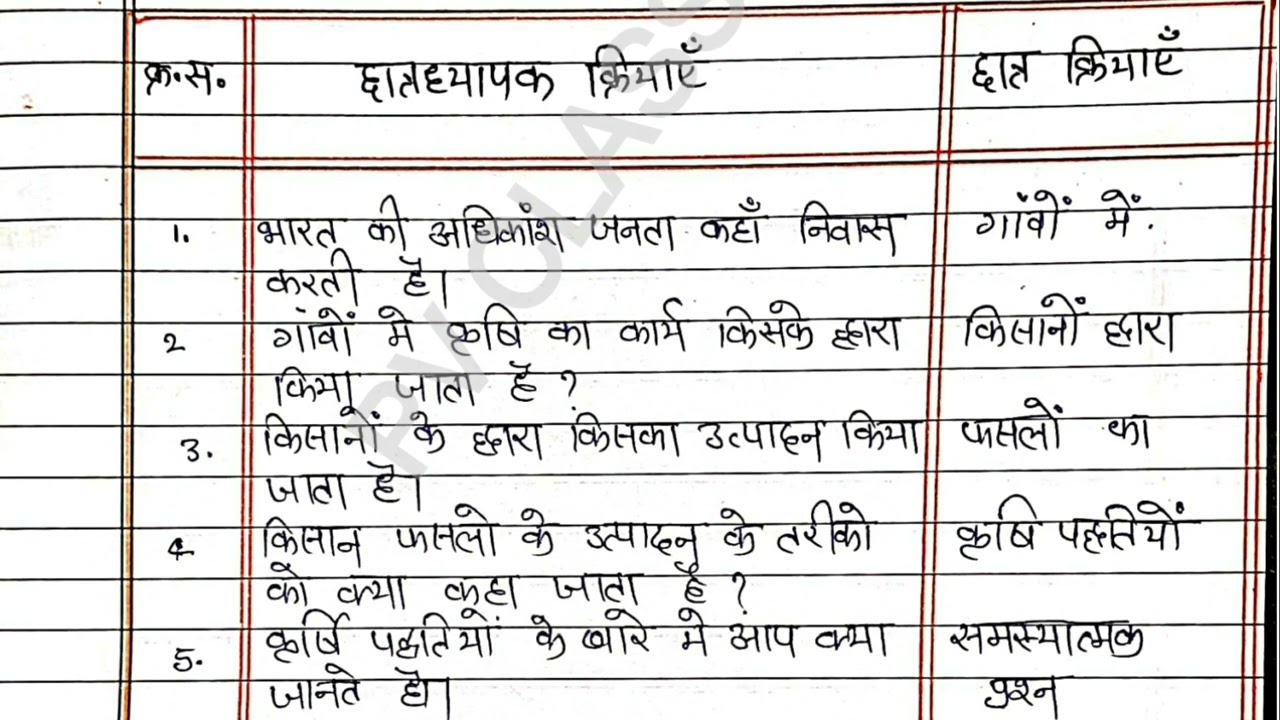 क्र.स. छात्रध्यापक क्रियाएँ छात्र क्रियाएँ
1. भारत की अधिकांश जनता कहाँ निवास गांवों में.
करती है।
2 गांवों मे कृषि का कार्य किसके द्वारा किसानों द्वारा
किया जाता है ?
3. किसानों के द्वारा किसका उत्पादन किया फसलों का
जाता है।
4 किसान फसलो के उत्पादन के तरीको कृषि पद्धतियों
को क्या कहा जाता है ?
5. कृर्षि पद्धतियों के बारे मे आप क्या समस्यात्मक
जानते हो। प्रश्न
PV CLASS